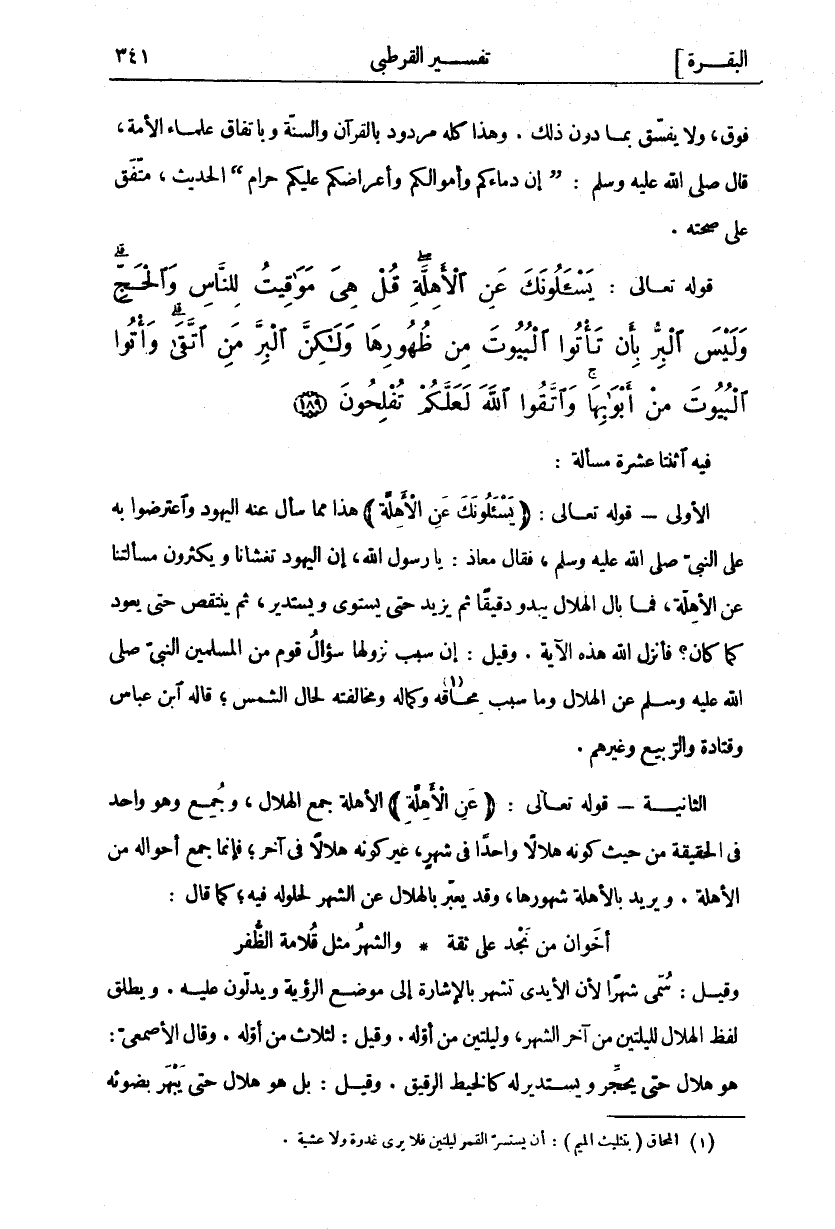 البقرة] تفسير القرطبى ٣٤١
فوق، ولا يفسّق بما دون ذلك . وهذا كله مردود بالقرآن والسنّة وباتفاق علماء الأمة،
قال صلى الله عليه وسلم : " إن دماءكم وأموالكم وأعراضكم عليكم حرام " الحديث ، متّفق
على صحته .
قوله تعالى : يَسْـَٔلُونَكَ عَنِ ٱلْأَهِلَّةِۖ قُلْ هِىَ مَوَٰقِيتُ لِلنَّاسِ وَٱلْحَجِّۗ
وَلَيْسَ ٱلْبِرُّ بِأَن تَأْتُوا۟ ٱلْبُيُوتَ مِن ظُهُورِهَا وَلَـٰكِنَّ ٱلْبِرَّ مَنِ ٱتَّقَىٰۗ وَأْتُوا۟
ٱلْبُيُوتَ مِنْ أَبْوَٰبِهَاۚ وَٱتَّقُوا۟ ٱللَّهَ لَعَلَّكُمْ تُفْلِحُونَ ﴿١٨٩﴾
فيه آثنتا عشرة مسألة :
الأولى — قوله تعالى : ﴿ يَسْئَلُونَكَ عَنِ الْأَهِلَّةِ ﴾ هذا مما سأل عنه اليهود وآعترضوا به
على النبىّ صلى الله عليه وسلم ، فقال معاذ : يا رسول الله، إن اليهود تغشانا ويكثرون مسألتنا
عن الأهلّة، فما بال الهلال يبدو دقيقًا ثم يزيد حتى يستوى ويستدير، ثم ينتقص حتى يعود
كما كان؟ فأنزل الله هذه الآية . وقيل : إن سبب نزولها سؤالُ قوم من المسلمين النبىّ صلى
الله عليه وسلم عن الهلال وما سبب محاقه(١) وكماله ومخالفته لحال الشمس ؛ قاله آبن عباس
وقتادة والرّبيع وغيرهم .
الثانية — قوله تعالى : ﴿ عَنِ الْأَهِلَّةِ ﴾ الأهلة جمع الهلال ، وجُمِع وهو واحد
فى الحقيقة من حيث كونه هلالًا واحدًا فى شهرٍ، غير كونه هلالًا فى آخر؛ فإنما جمع أحواله من
الأهلة . ويريد بالأهلة شهورها، وقد يعبّر بالهلال عن الشهر لحلوله فيه؛ كما قال :
أخَوان من نَجْد على ثقة * والشهرُ مثل قُلامة الظُّفر
وقيل : سُمّى شهرًا لأن الأيدى تشهر بالإشارة إلى موضع الرؤية ويدلّون عليه . ويطلق
لفظ الهلال لليلتين من آخر الشهر، وليلتين من أوّله. وقيل : لثلاث من أوّله . وقال الأصمعىّ :
هو هلال حتى يحجِّر ويستدير له كالخيط الرقيق . وقيل : بل هو هلال حتى يَبْهَر بضوئه
(١) المحاق ( بتثليث الميم ) : أن يستسرّ القمر ليلتين فلا يرى غدوة ولا عشية .